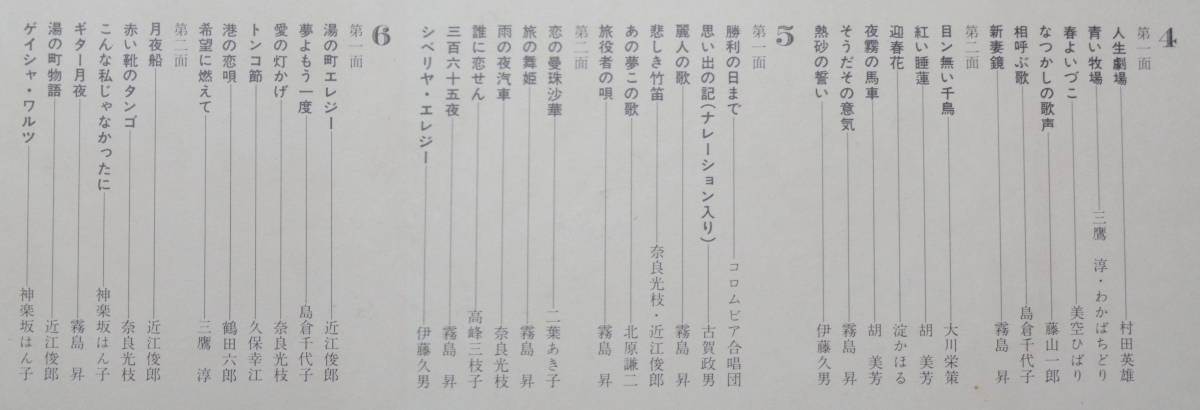 4
第一面
人生劇場 村田英雄
青い牧場 三鷹 淳・わかばちどり
春よいづこ 美空ひばり
なつかしの歌声 藤山一郎
相呼ぶ歌 島倉千代子
新妻鏡 霧島 昇
第二面
目ン無い千鳥 大川栄策
紅い睡蓮 胡 美芳
迎春花 淀かほる
夜霧の馬車 胡 美芳
そうだその意気 霧島 昇
熱砂の誓い 伊藤久男
5
第一面
勝利の日まで コロムビア合唱団
思い出の記(ナレーション入り) 古賀政男
麗人の歌 霧島 昇
悲しき竹笛 奈良光枝・近江俊郎
あの夢この歌 北原謙二
旅役者の唄 霧島 昇
第二面
恋の曼珠沙華 二葉あき子
旅の舞姫 霧島 昇
雨の夜汽車 奈良光枝
誰に恋せん 高峰三枝子
三百六十五夜 霧島 昇
シベリヤ・エレジー 伊藤久男
6
第一面
湯の町エレジー 近江俊郎
夢よもう一度 島倉千代子
愛の灯かげ 奈良光枝
トンコ節 久保幸江
港の恋唄 鶴田六郎
希望に燃えて 三鷹 淳
第二面
月夜船 近江俊郎
赤い靴のタンゴ 奈良光枝
こんな私じゃなかったに 神楽坂はん子
ギター月夜 霧島 昇
湯の町物語 近江俊郎
ゲイシャ・ワルツ 神楽坂はん子